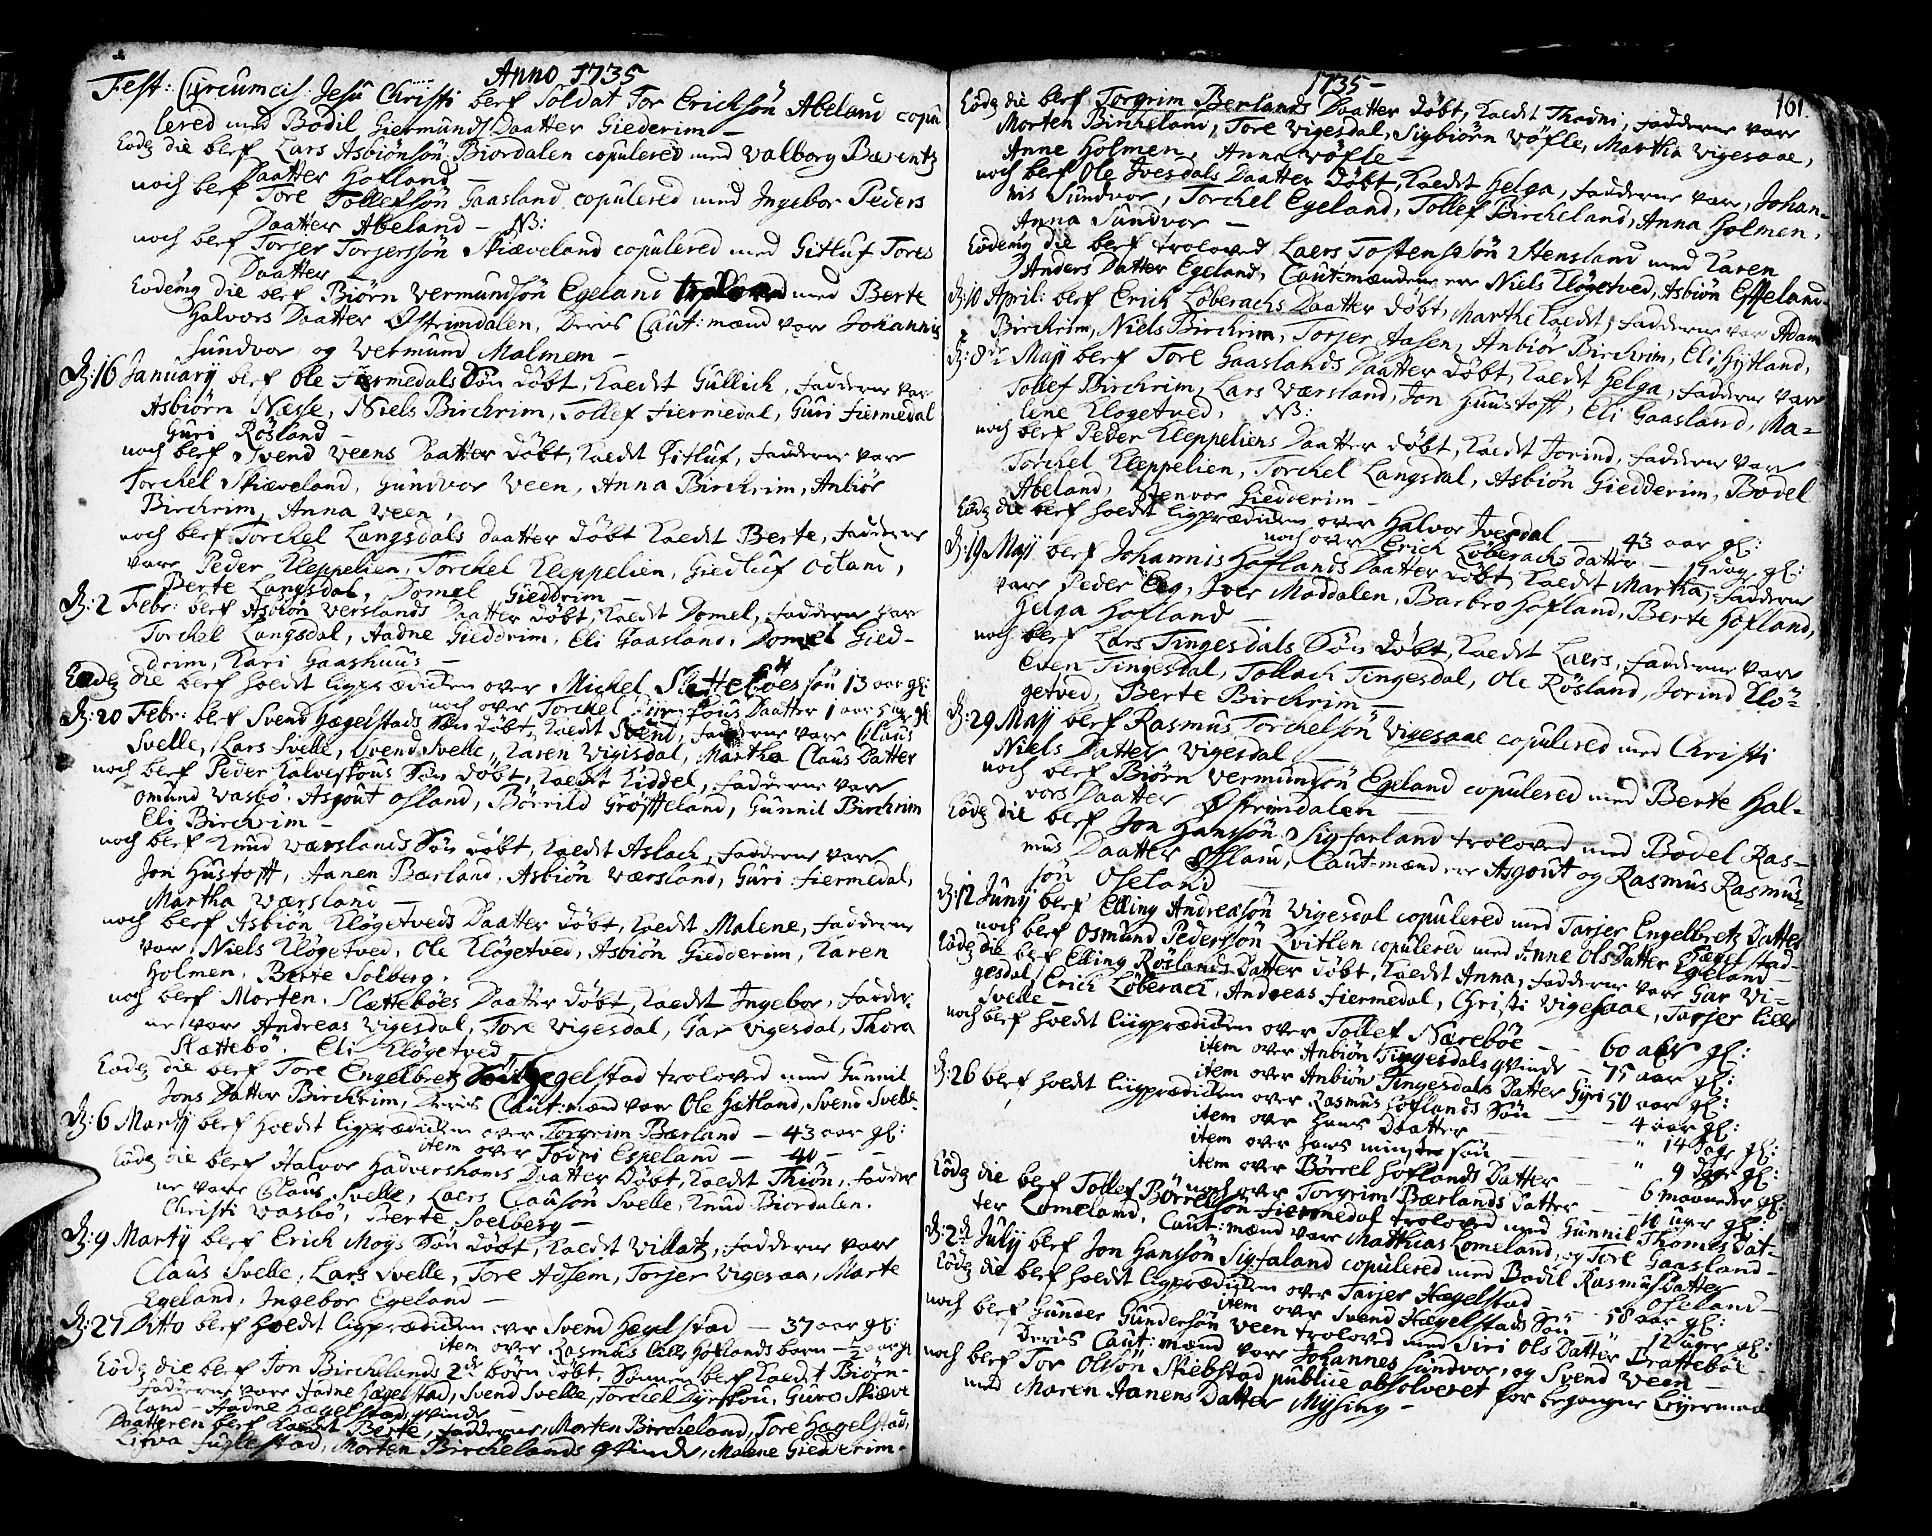 Anno 1735
Fest: Circumcis: Jesu Christi blef Soldat Tor Erichsøn Abeland copu
lered med Bodil Giermunds Daatter Giederim –
Eod: die blef Lars Asbiønsøn Biordalen copulered med Valborg Bærentz
Daatter Hofland –
noch blef Tore Tollefsøn Gaasland copulered med Ingebor Peders
Daatter Abeland – NB:
noch blef Torjer Torjersøn Skiæveland copulered med Gitluf Tores
Daatter –
Eodemq die blef Biørn Vermundsøn Egeland troloved med Berte
Halvors Daatter Østrimdalen, Deris Caut: mænd var Johannis
Sundvor og Vermund Malmem –
D: 16 January blef Ole Fiermedals Søn døbt, kaldt Gullich, Fadderne var
Asbiørn Næsse, Niels Birchrim, Tollef Fiermedal, Guri Fiermedal
Guri Røsland –
noch blef Svend Veens Daatter døbt, kaldt Sitluf, Fadderne vare
Torchel Skiæveland, Gundvor Veen, Anna Birchrim, Anbiør
Birchrim, Anna Veen,
noch blef Torchel Langsdals daatter døbt kaldt Berte, Fadderne
vare Peder Kleppelien, Torchel Kleppelien, Giedluf Odland,
Berte Langsdal, Domel Giedrim –
D: 2 Febr: blef Asbiøn Verslands Daatter døbt, kaldt Domel, Fadderne var
Torchel Langsdal, Aadne Giedrim, Eli Gaasland, Domel Gied-
drim, Kari Gaashuus –
Eod: die blef holdt ligprædichen over Michel Sletteböes søn 13 aar gl:
noch over Torchel Daatter 1 aar gl
D: 20 Febr: blef Svend Hægelstads Søn døbt, kaldt Svend, Fadderne vare Claus
Svelle, Lars Svelle, Svend Svelle, Karen Vigisdal, Martha Claus Datter
noch blef Peder Kalveskous Søn døbt, kaldt Kiddel, Fadderne var
Omund Vasbø, Asgout Osland, Børrild Grøftteland, Gunnil Birchrim
Eli Birchrim –
noch blef Knud Værslands Søn døbt, kaldt Aslach, Fadderne vare
Jon Hustoft, Aanen Bærland, Asbiøn Værsland, Guri Fiermedal,
Martha Værsland –
noch blef Asbiøn Kløgetveds Daatter døbt, kaldt Malene, Fadderne
var Niels Kløgetved, Ole Kløgetved, Asbiøn Giedderim, Karen
Holmen, Berte Solberg.
noch blef Morten Slættebøes Daatter døbt, kaldt Ingebor, Fadder-
ne vare Andreas Vigesdal, Tore Vigesdal, Gar Vigesdal, Thora
Slættebø, Eli Kløgetved
Eod: die blef Tore Engelbretz Søn Hægelstad troloved med Gunnil
Jons Datter Birchrim, Deris Caut: mænd var Ole Hætland, Svend Svelle.
D: 6 Marty blef holdt ligprædichen over Torgrim Bærland – 43 aar gl:
item over Todni Espeland – 40 – –
Eod: die blef Halvor Hadvershams Daatter Døbt, kaldt Thiøn, Fadder
ne vare Claus Svelle, Laers Clausøn Svelle, Knud Biordalen.
Christi Vasbø, Berte Soelberg –
D: 9 Marty blef Erich Moÿs Søn døbt, kaldt Villatz, Fadderne vare
Claus Svelle, Lars Svelle, Tore Aasem, Torjer Vigesaa, Marte
Egeland, Ingebor Egeland –
D: 27 Ditto blef holdt ligprædichen over Svend Hægelstad – 37 aar gl:
item over Rasmus lille Hoflands barn – ½ aar gl
Eod: die blef Jon Birchelands 2de børn døbt, Sønnen blef kaldt Biørn
Fadderne vare Aadne Hægelstad, Svend Svelle, Torchel Dyrskou, Guro Skiæve
land – Aadne Hægelstads qvinde –
Daatteren blef kaldt Berte, Fadderne, Morten Bircheland, Tore Hægelstad,
Fuglestad, Morten Birchelands qvinde, Malene Giedderim.
1735 –
161.
Eod: die blef Torgrim Berlands Daatter døbt, kaldt Thodni, Fadderne vare
Morten Bircheland, Tore Vigesdal, Sigbiørn Vøfle, Martha Vigesaae,
Anne Holmen, Anna Vøfle –
noch blef Ole Ivesdals Daatter døbt, kaldt Helga, Fadderne vare, Johan-
nis Sundvor, Torchel Egeland, Tollef Bircheland, Anna Holmen,
Anna Sundvor –
Eodemq die blef troloved Laers Tostensøn Stensland med Karen
Anders Datter Egeland, Caut: mændene ere Niels Kløgetved, Asbiøn Effeland
D: 10 April: blef Erich Løberachs Daatter døbt, Marthe kaldt, Fadderne var Adam
Birchrim, Niels Birchrim, Torjer Aasen, Anbiør Birchrim, Eli Hÿtland,
D: 8de Maÿ blef Tore Gaaslands Daatter døbt, kaldt Helga, Fadderne vare
Tollef Birchrim, Lars Værsland, Jon Huustoft, Eli Gaasland, Ma-
lene Klogetved, NB:
noch blef Peder Kleppeliens Daatter døbt, kaldt Jorind, Fadderne var
Torchel Kleppelien, Torchel Langsdal, Asbiøn Giedderim, Bodel
Abeland, Stenvor Giedderim –
Eod: die blef holdt ligprædichen over Halvor Ivesdal – 43 aar gl:
noch over Erich Løberachs datter – 19 dag gl:
D: 19 Maÿ blef Johannis Hoflands Daatter døbt, kaldt Martha, Fadderne
vare Peder Eeg, Iver Moddalen, Barbro Hofland, Berte Hofland,
Helga Hofland –
noch blef Lars Tingesdals Søn døbt, kaldt Laers, Fadderne vare
Even Tingesdal, Tollach Tingesdal, Ole Røsland, Jorind Klö-
getved, Berte Birchrim –
D: 29 Maÿ blef Rasmus Torchelsøn Vigesaae copulered med Christi
Niels Datter Vigesdal –
noch blef Biørn Vermundsøn Egeland copulered med Berte Hal-
vors Daatter Østrimdalen –
Eod: die blef Jon Hansøn Sigfarland troloved med Bodel Ras-
mus Daatter Osland, Caut: mænd ere Asgout og Rasmus Rasmus-
søn Oseland –
D: 12 Juny blef Elling Andreasøn Vigesdal copulered med Tarjer Engelbretz Datter
noch blef Osmund Pedersøn Qvitlen copulered med Anne Ols Datter Egeland
Hægelstad –
Eod: die blef Elling Røslands Datter døbt, kaldt Anna, Fadderne vare Gar Vi-
gesdal, Erich Løberach, Andreas Fiermedal, Christi Vigesaae, Tarjer lille
Svelle –
noch blef holdt liigprædichen over Tollef Nærebøe – 60 aar gl:
item over Anbiøn Tingesdals qvinde – 75 aar gl:
item over Anbiøn Tingesdals Datter Gÿri 50 aar gl:
D: 26 blef holdt liigprædichen over Rasmus Hoflands Søn – 4 aar gl:
item over Hans Daatter – " 14 dage gl:
item over hans minste søn – " 9 dage gl:
item over Børrel Hoflands Datter – 6 maaneder gl:
noch over Torgrim Bærlands Datter – 10 uger gl:
Eod: die blef Tollef Børrelsøn Fiermedal troloved med Gunnil Thomes Dat-
ter Lomeland, Caut: mænd vare Matthias Lomeland, og Tore Gaasland –
D: 2de July blef Jon Hansøn Sigfaland copulered med Bodil Rasmus Datter
Oseland –
Eod: die blef holdt ligprædichen over Tarjer Hægelstad – 58 aar gl:
item over Svend Hægelstads Søn – 12 uger gl:
noch blef Gunder Gundersøn Veen troloved med Siri Ols Datter Brattebøe
Deris Caut: mænd vare Johannes Sundvor, og Svend Veen –
noch blef Tor Olsøn Skiebstad publice absolveret for begangne Leyermaal
med Maren Aanens Datter Mÿsing –